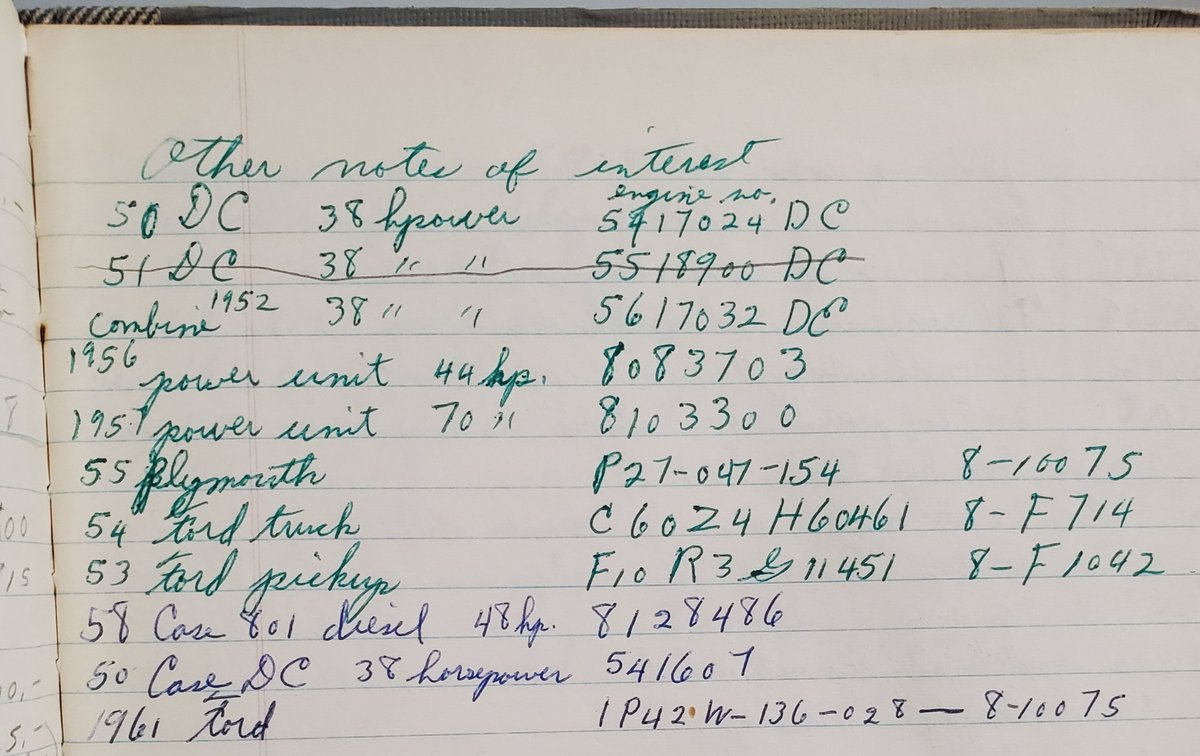 Other notes of interest
engine no.
50 DC 38 hpower 5417024 DC
51 DC 38 " " 5518900 DC
combine 1952 38 " " 5617032 DC
1956 power unit 44 hp. 8083703
1957 power unit 70 " 8103300
55 plymouth P27-047-154 8-10075
54 Ford truck C60Z4H60461 8-F714
53 Ford pickup F10R3 11451 8-F1042
58 Case 801 diesel 48 hp. 8128486
50 Case DC 38 horsepower 541607
1961 Ford 1P42W-136-028 — 8-10075
00
15
0,-
5,-